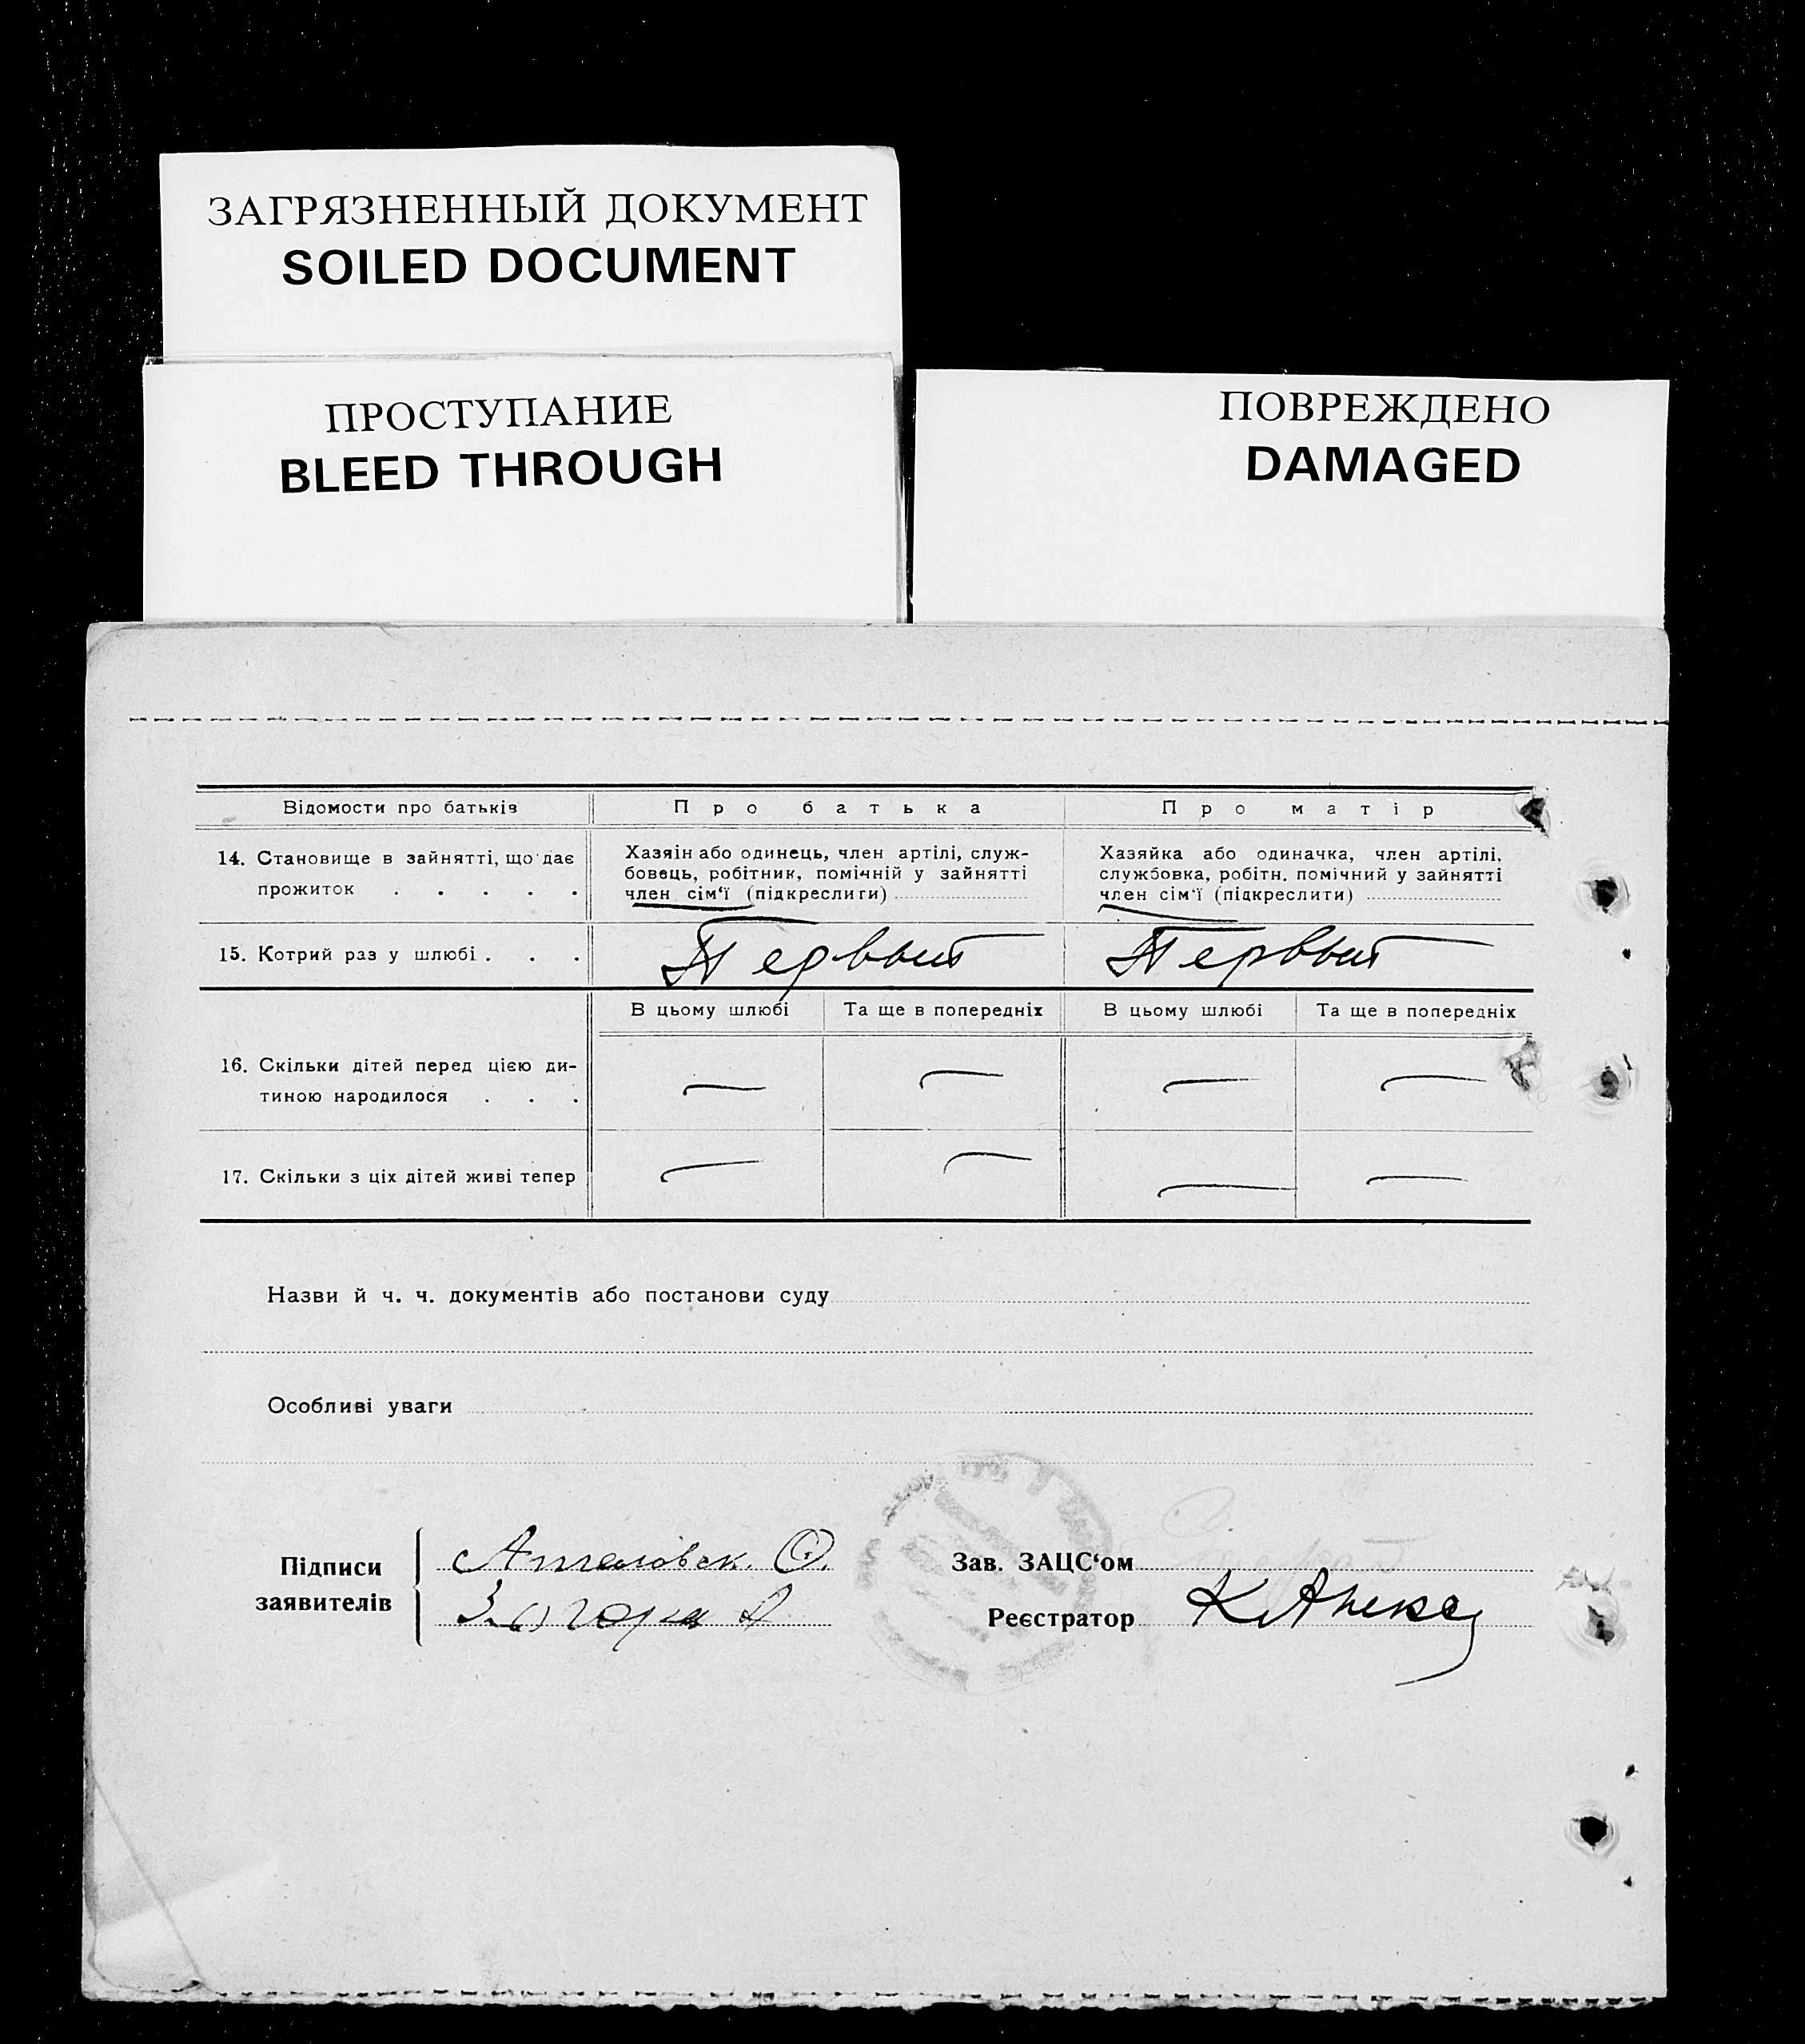 ЗАГРЯЗНЕННЫЙ ДОКУМЕНТ
SOILED DOCUMENT
ПРОСТУПАНИЕ
BLEED THROUGH
ПОВРЕЖДЕНО
DAMAGED
Відомости про батьків
Про батька
Про матір
14. Становище в зайнятті, що дає
прожиток . . . . .
Хазяін або одинець, член артілі, служ-
бовець, робітник, помічній у зайнятті
член сім'ї (підкреслити)
Хазяйка або одиначка, член артілі,
службовка, робітн. помічний у зайнятті
член сім'ї (підкреслити)
15. Котрий раз у шлюбі . . .
Первый
Первый
В цьому шлюбі
Та ще в попередніх
В цьому шлюбі
Та ще в попередніх
16. Скільки дітей перед цією ди-
тиною народилося . . .
— — — —
17. Скільки з ціх дітей живі тепер
— — — —
Назви й ч. ч. документів або постанови суду
Особливі уваги
Підписи
заявителів
О.
Зав. ЗАЦС'ом
Реєстратор